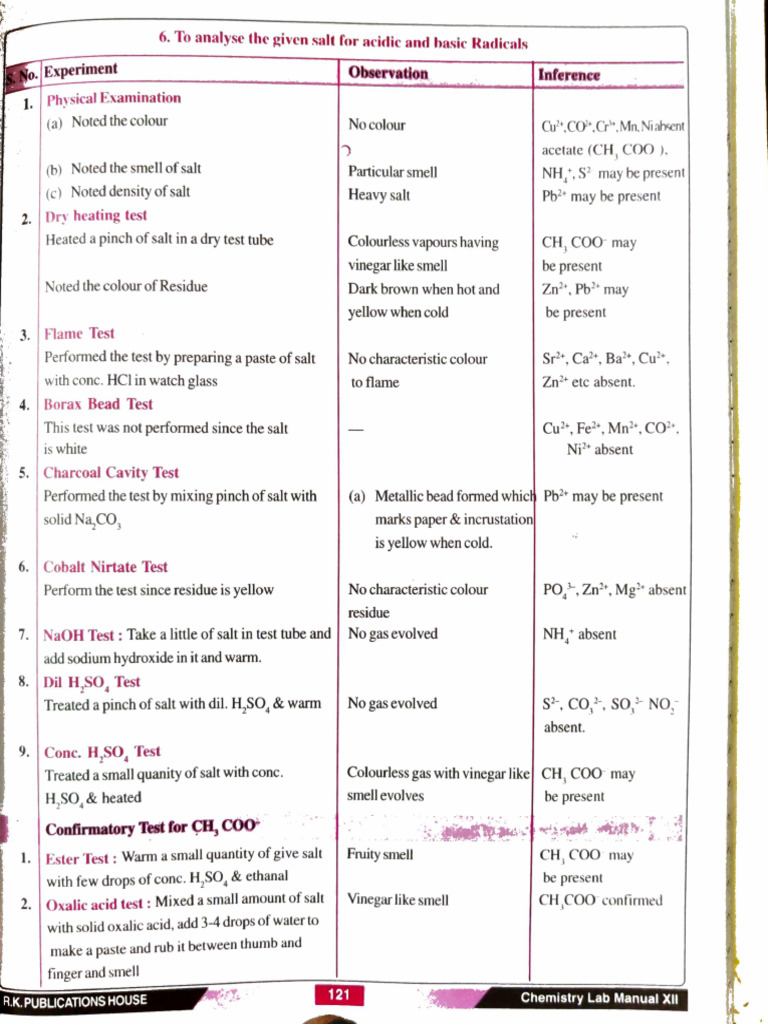 6. To analyse the given salt for acidic and basic Radicals
S. No. Experiment Observation Inference
1. Physical Examination
(a) Noted the colour No colour Cu²⁺,CO²⁺,Cr³⁺,Mn,Ni absent
acetate (CH₃ COO ).
(b) Noted the smell of salt Particular smell NH₄⁺, S² may be present
(c) Noted density of salt Heavy salt Pb²⁺ may be present
2. Dry heating test
Heated a pinch of salt in a dry test tube Colourless vapours having CH₃ COO⁻ may
vinegar like smell be present
Noted the colour of Residue Dark brown when hot and Zn²⁺, Pb²⁺ may
yellow when cold be present
3. Flame Test
Performed the test by preparing a paste of salt No characteristic colour Sr²⁺, Ca²⁺, Ba²⁺, Cu²⁺,
with conc. HCl in watch glass to flame Zn²⁺ etc absent.
4. Borax Bead Test
This test was not performed since the salt — Cu²⁺, Fe²⁺, Mn²⁺, CO²⁺,
is white Ni²⁺ absent
5. Charcoal Cavity Test
Performed the test by mixing pinch of salt with (a) Metallic bead formed which Pb²⁺ may be present
solid Na₂CO₃ marks paper & incrustation
is yellow when cold.
6. Cobalt Nirtate Test
Perform the test since residue is yellow No characteristic colour PO₄³⁻, Zn²⁺, Mg²⁺ absent
residue
7. NaOH Test : Take a little of salt in test tube and No gas evolved NH₄⁺ absent
add sodium hydroxide in it and warm.
8. Dil H₂SO₄ Test
Treated a pinch of salt with dil. H₂SO₄ & warm No gas evolved S²⁻, CO₃²⁻, SO₃²⁻ NO₂⁻
absent.
9. Conc. H₂SO₄ Test
Treated a small quanity of salt with conc. Colourless gas with vinegar like CH₃ COO⁻ may
H₂SO₄ & heated smell evolves be present
Confirmatory Test for CH₃ COO⁻
1. Ester Test : Warm a small quantity of give salt Fruity smell CH₃ COO⁻ may
with few drops of conc. H₂SO₄ & ethanal be present
2. Oxalic acid test : Mixed a small amount of salt Vinegar like smell CH₃COO⁻ confirmed
with solid oxalic acid, add 3-4 drops of water to
make a paste and rub it between thumb and
finger and smell
R.K. PUBLICATIONS HOUSE 121 Chemistry Lab Manual XII